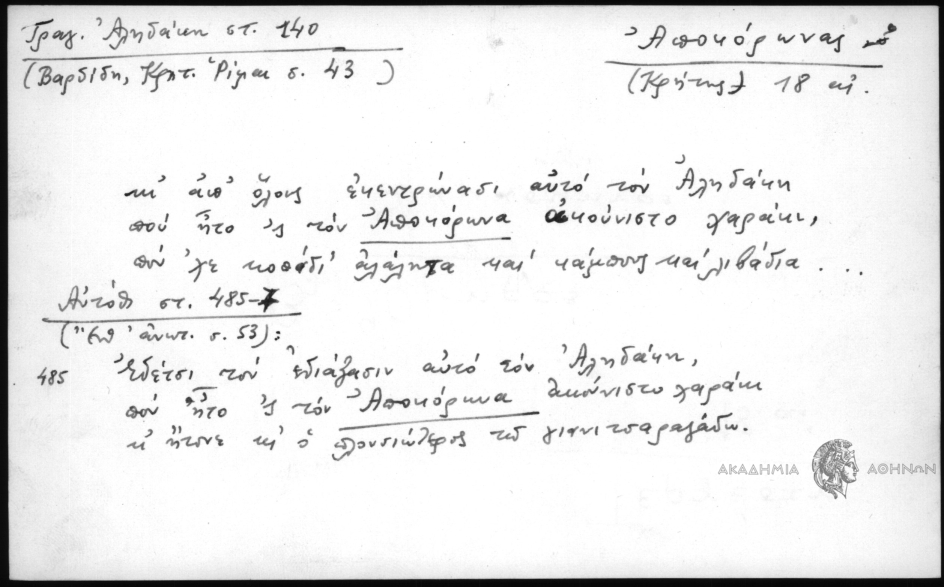 Τραγ. Ἀληδάκη στ. 140
(Βαρδίδη, Κρητ. Ρίμαι σ. 43 )
Ἀποκόρωνας
(Κρήτης) 18 αἰ.
κι' ἀπ' ὅλους ἐκεντρώνασι αὐτό τόν Ἀληδάκη
πού ἦτο 'ς τόν Ἀποκόρωνα ἀκούνιστο χαράκι,
πού 'χε κοπάδι' ἀλάλητα καί κάμπους καί λιβάδια . . .
Αὐτόθι στ. 485-7
(Ἔνθ' ἀνωτ. σ. 53):
485 Ἐδέτσι τόν ἐδιάβασιν αὐτό τόν Ἀληδάκη,
πού ἦτο 'ς τόν Ἀποκόρωνα ἀκούνιστο χαράκι
κ' ἤτονε κι' ὁ πλουσιώτερος τῶ γιανιτσαραγάδω.
ΑΚΑΔΗΜΙΑ ΑΘΗΝΩΝ